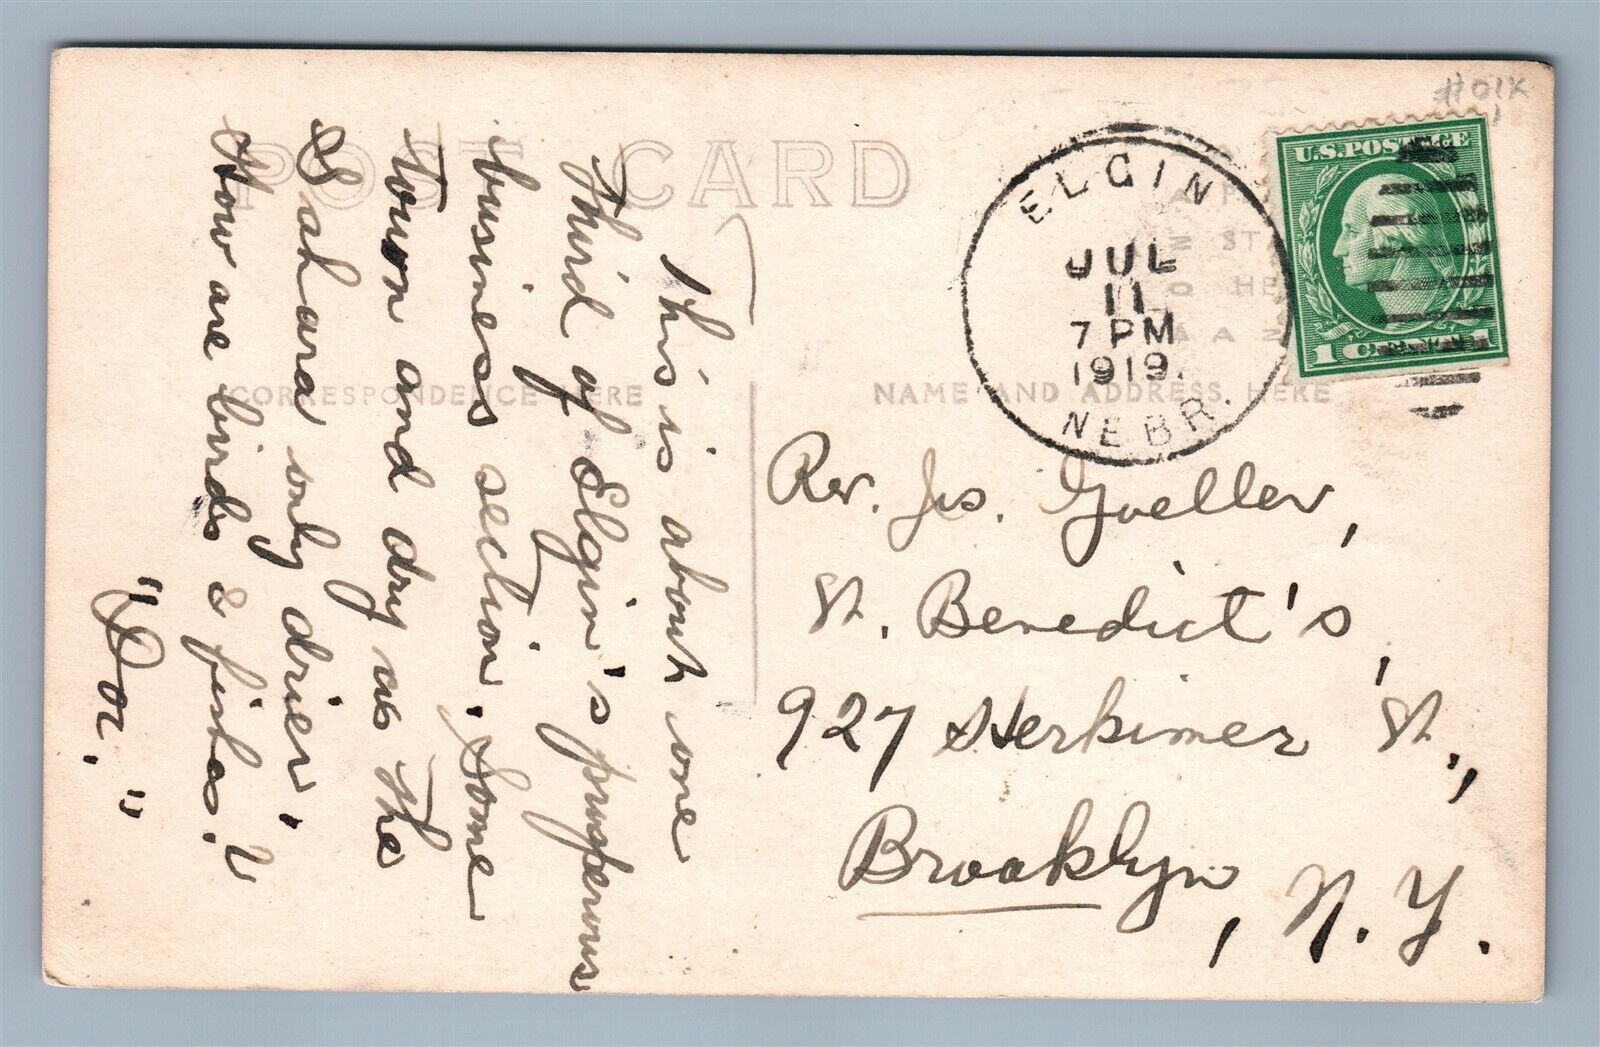 POST CARD
CORRESPONDENCE HERE
NAME AND ADDRESS HERE
This is about one
Third of Elgin's prosperous
business section. Some
Town and dry as The
Sahara only drier.
How are birds & fishes?
"Doc."
ELGIN
JUL
11
7 PM
1919.
NEBR.
U.S. POSTAGE
1 CENT 1
Rev. Jos. Goeller,
St. Benedict's,
927 Herkimer St.,
Brooklyn, N.Y.